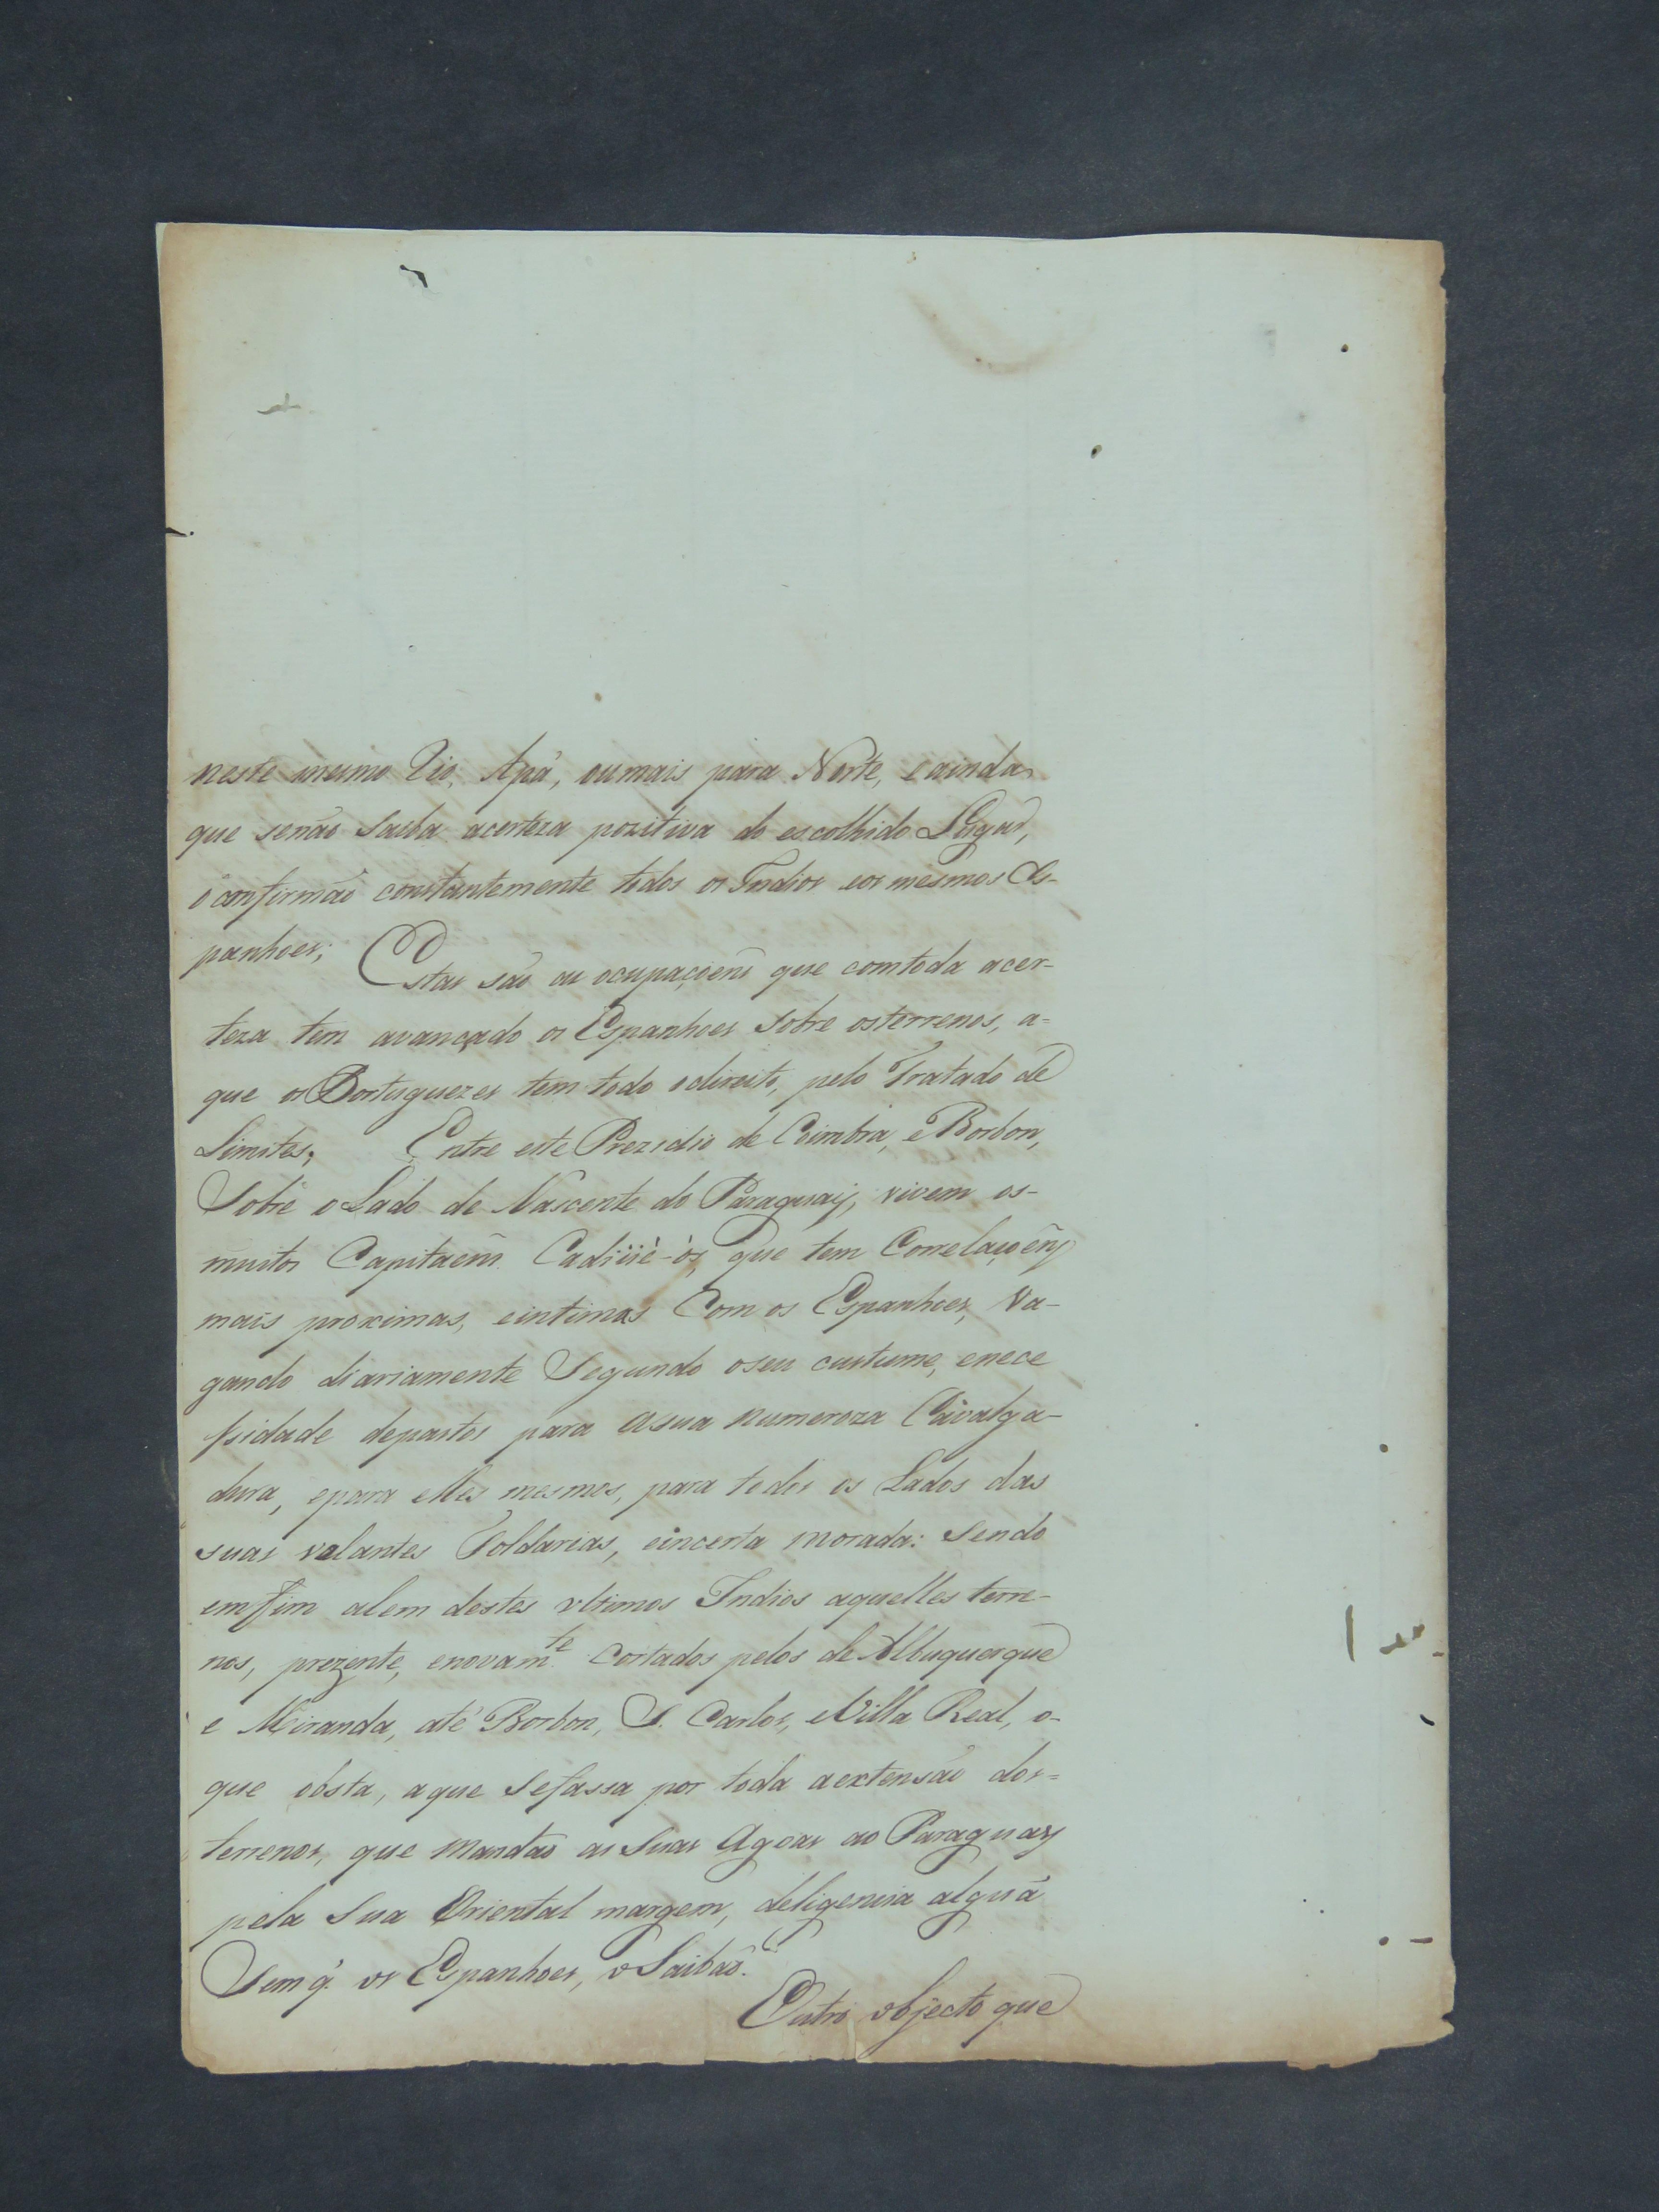 neste mesmo Rio, Apá, oumais para Norte, eainda
que senão saiba acerteza pozitiva do escolhido Lugar,
o confirmão constantemente todos os Indios eos mesmos Es-
panhoes; Estas são as ocupaçoens que comtoda acer-
teza tem avançado os Espanhoes sobre osterrenos, a=
que os Portuguezes tem todo odireito, pelo Tratado de
Limites; Entre este Prezidio de Coimbra, e Borbon,
Sobre o Lado de Nascente do Paraguay, vivem os-
muitos Capitaens Cadiüè-òs, que tem Correlaçoens
mais proximas, eintimas Com os Espanhoes, Va-
gando diariamente Segundo oseu custume, enece
ssidade depastos para asua numeroza Cavalga-
dura, epara elles mesmos, para todos os Lados das
suas volantes Toldarias, eincerta morada: Sendo
emfim alem destes ultimos Indios aquelles terre-
nos, prezente, enovam.te Cortados pelos de Albuquerque
e Miranda, até Borbon, S. Carlos, eVilla Real, o-
que obsta, aque Sefassa por toda aextensão dos=
terrenos, que mandão as Suas Agoas ao Paraguay
pela Sua Oriental margem, deligencia alguã
Sem q. os Espanhoes, o Saibão.
Outro objecto que